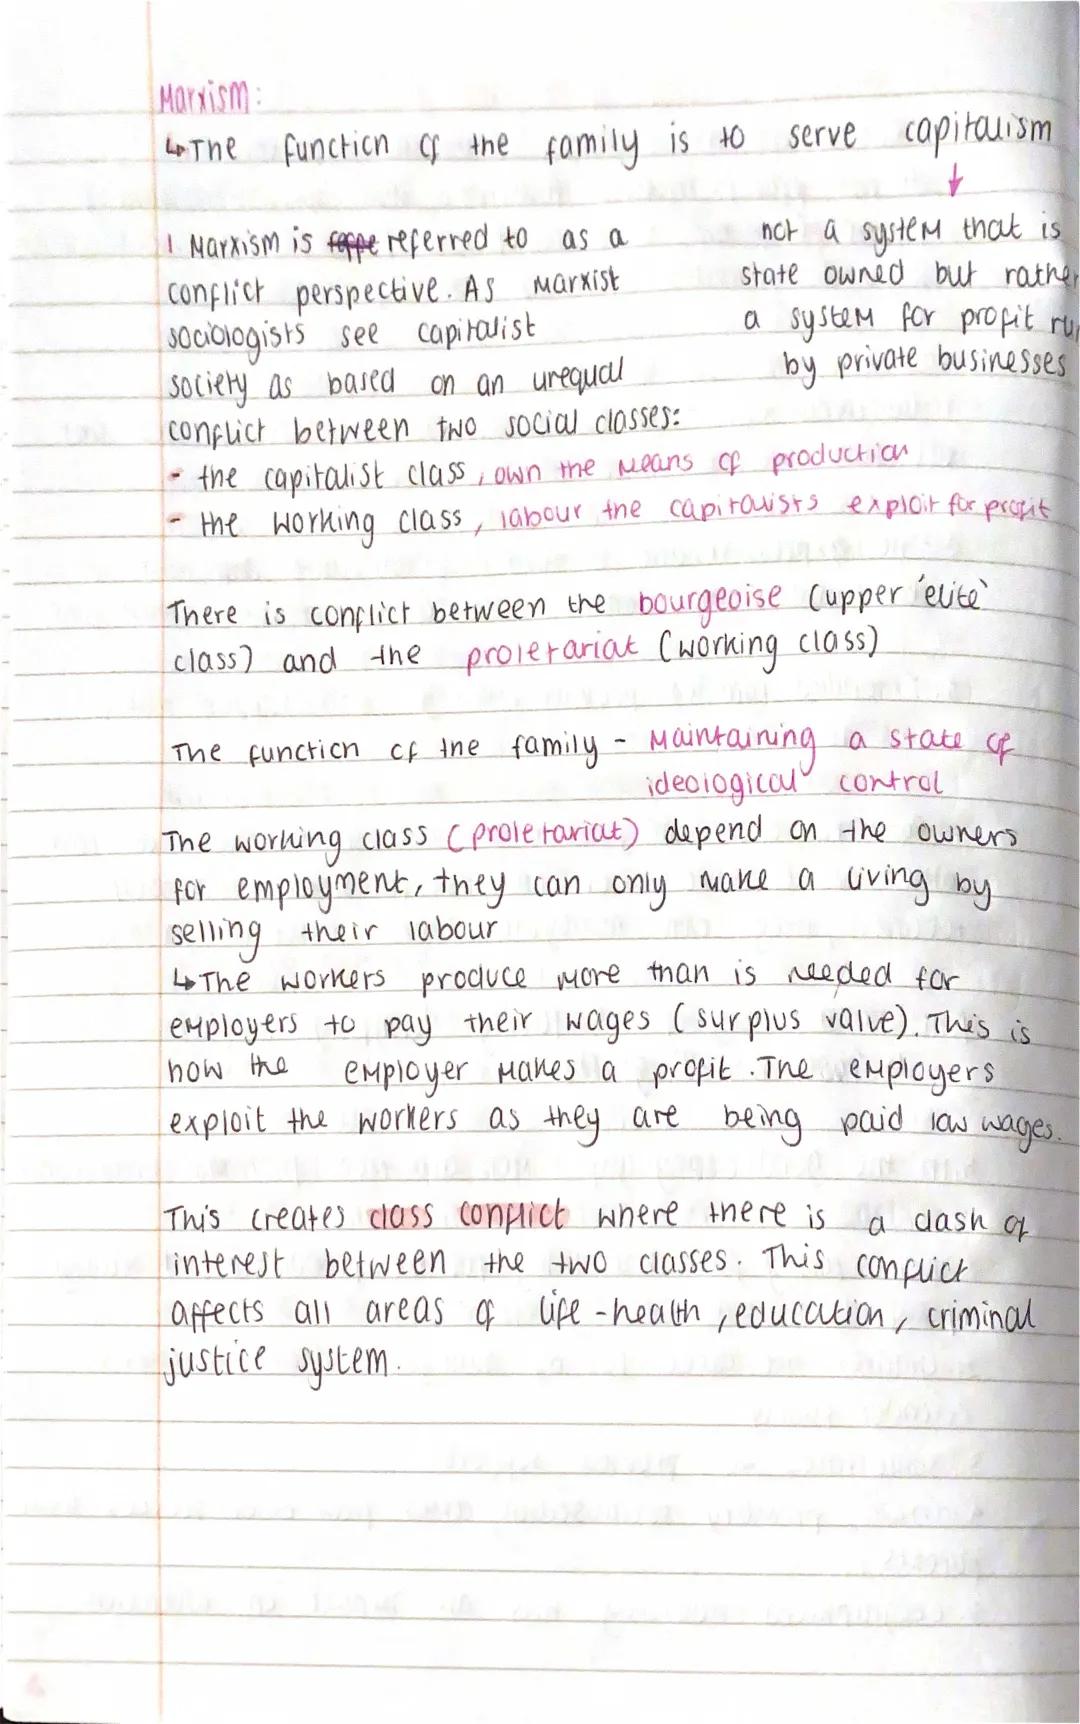 Marxism:
↳The function of the family is to serve capitalism
↓
not a system that is
state owned but rather
a system for profit run
by private businesses
1 Marxism is referred to as a
conflict perspective. As Marxist
sociologists see capitalist
society as based on an unequal
conflict between two social classes:
- the capitalist class, own the means of production
- the working class, labour the capitalists exploit for profit
There is conflict between the bourgeoise (upper 'elite'
class) and the proletariat (working class)
The function of the family - Maintaining a state of
ideological control
The working class (proletariat) depend on the owners
for employment, they can only make a living by
selling their labour
↳The workers produce more than is needed for
employers to pay their wages (surplus value). This is
how the employer makes a profit. The employers
exploit the workers as they are being paid low wages.
This creates class conflict where there is a clash of
interest between the two classes. This conflict
affects all areas of life - health, education, criminal
justice system.